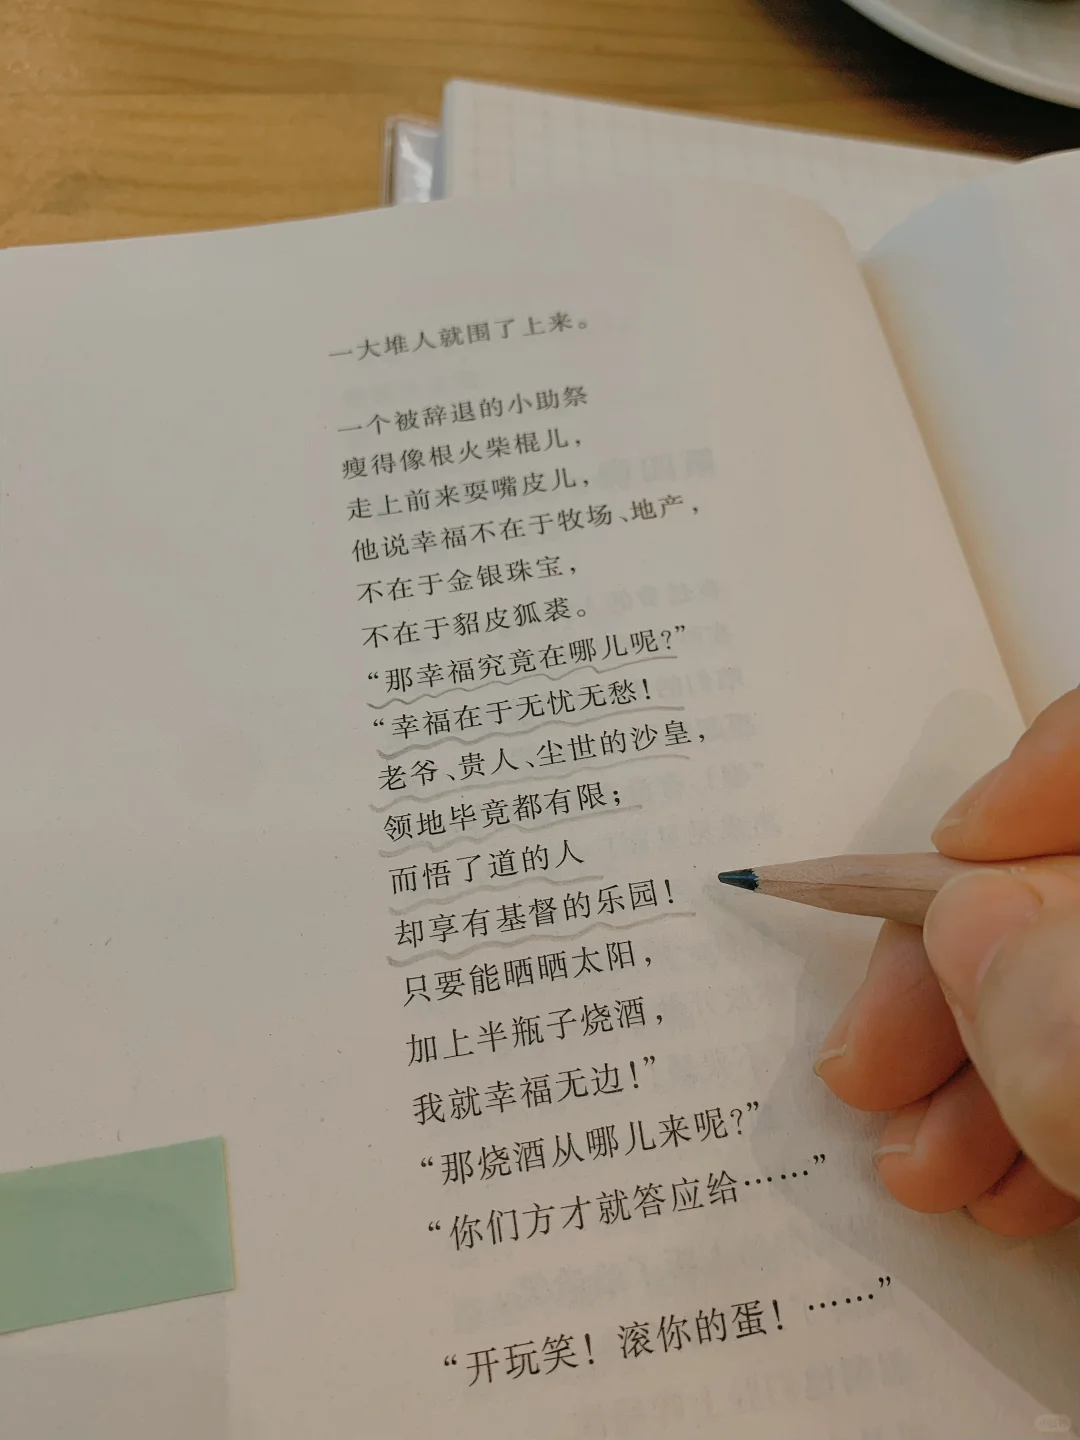 一大堆人就围了上来。
一个被辞退的小助祭
瘦得像根火柴棍儿，
走上前来耍嘴皮儿，
他说幸福不在于牧场、地产，
不在于金银珠宝，
不在于貂皮狐裘。
“那幸福究竟在哪儿呢？”
“幸福在于无忧无愁！
老爷、贵人、尘世的沙皇，
领地毕竟都有限；
而悟了道的人
却享有基督的乐园！
只要能晒晒太阳，
加上半瓶子烧酒，
我就幸福无边！”
“那烧酒从哪儿来呢？”
“你们方才就答应给……”
“开玩笑！滚你的蛋！……”